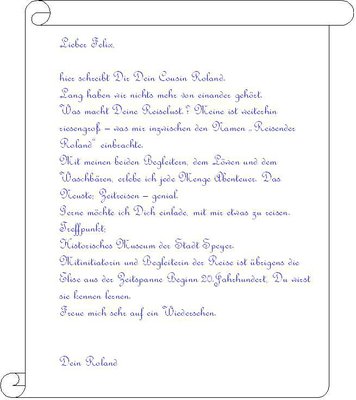 Lieber Felix,
hier schreibt Dir Dein Cousin Roland.
Lang haben wir nichts mehr von einander gehört.
Was macht Deine Reiselust? Meine ist weiterhin
riesengroß – was mir inzwischen den Namen „Reisender
Roland" einbrachte.
Mit meinen beiden Begleitern, dem Löwen und dem
Waschbären, erlebe ich jede Menge Abenteuer. Das
Neuste: Zeitreisen – genial.
Gerne möchte ich Dich einlade, mit mir etwas zu reisen.
Treffpunkt:
Historisches Museum der Stadt Speyer.
Mitinitiatorin und Begleiterin der Reise ist übrigens die
Elise aus der Zeitspanne Beginn 20.Jahrhundert. Du wirst
sie kennen lernen.
Freue mich sehr auf ein Wiedersehen.
Dein Roland